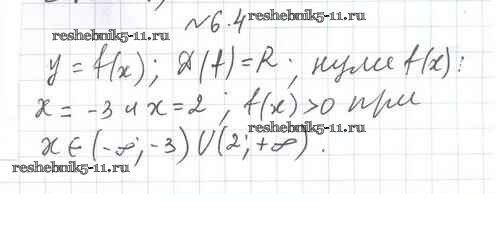 №6.4 reshebnik5-11.ru
reshebnik5-11.ru
y = f(x); D(f) = R; нули f(x):
x = -3 и x = 2; f(x) > 0 при
reshebnik5-11.ru
x ∈ (-∞; -3) ∪ (2; +∞).
reshebnik5-11.ru